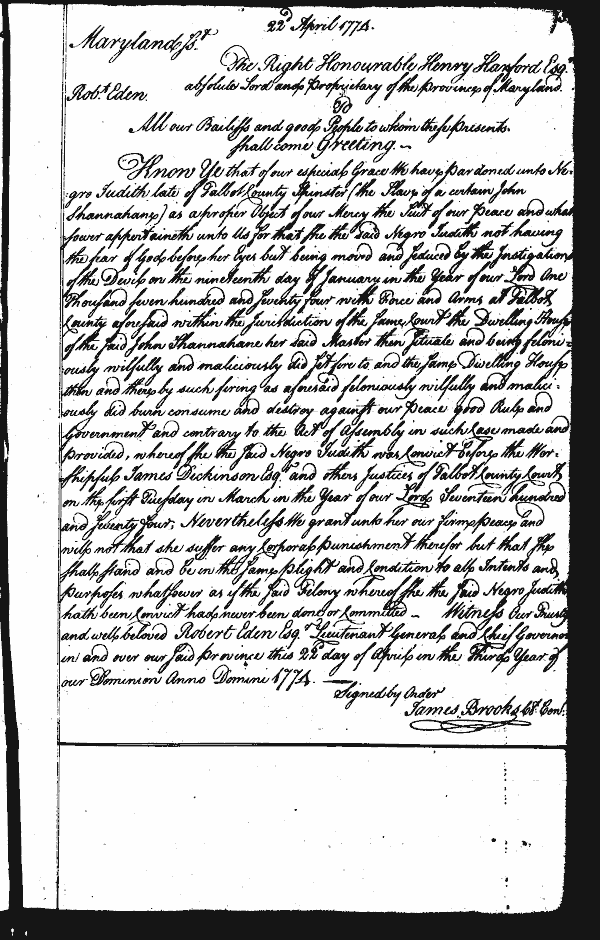 22d April 1774.
Maryland Sst
The Right Honourable Henry Harford Esqr
Robt Eden
absolute Lord and Proprietary of the Province of Maryland
To
All our Bailiffs and good People to whom these presents
shall come Greeting. ~
Know Ye that of our especial Grace We have pardoned unto Ne-
gro Judith late of Talbot County Spinster (the Slave of a certain John
Shannahane) as a proper Object of our Mercy the Suit of our Peace and what
soever appertaineth unto Us for that she the said Negro Judith not having
the fear of God before her Eyes but being moved and seduced by the Instigation
of the Devil on the nineteenth day of January in the Year of our Lord One
Thousand seven hundred and seventy four with Force and Arms at Talbot
County aforesaid within the Jurisdiction of the same Court the Dwelling House
of the said John Shannahane her said Master then situate and being feloni-
ously wilfully and maliciously did set fire to and the same Dwelling House
then and there by such firing as aforesaid feloniously wilfully and malici-
ously did burn consume and destroy against our peace good Rule and
Government and contrary to the Act of Assembly in such Case made and
provided, whereof she the said Negro Judith was Convict before the Wor-
shipful James Dickinson Esqr and others Justices of Talbot County Court
on the first Tuesday in March in the Year of our Lord Seventeen hundred
and seventy four, Nevertheless We grant unto her our firm peace and
will not that she suffer any Corporal punishment therefor but that she
shall stand and be in the same plight and Condition to all Intents and
purposes whatsoever as if the said Felony whereof she the said Negro Judith
hath been Convict had never been done or Committed ~ Witness our Trusty
and well beloved Robert Eden Esqr Lieutenant General and Chief Governor
in and over our said Province this 22d day of April in the Third Year of
our Dominion Anno Domini 1774. —
Signed by Order
James Brooks Clk Con.